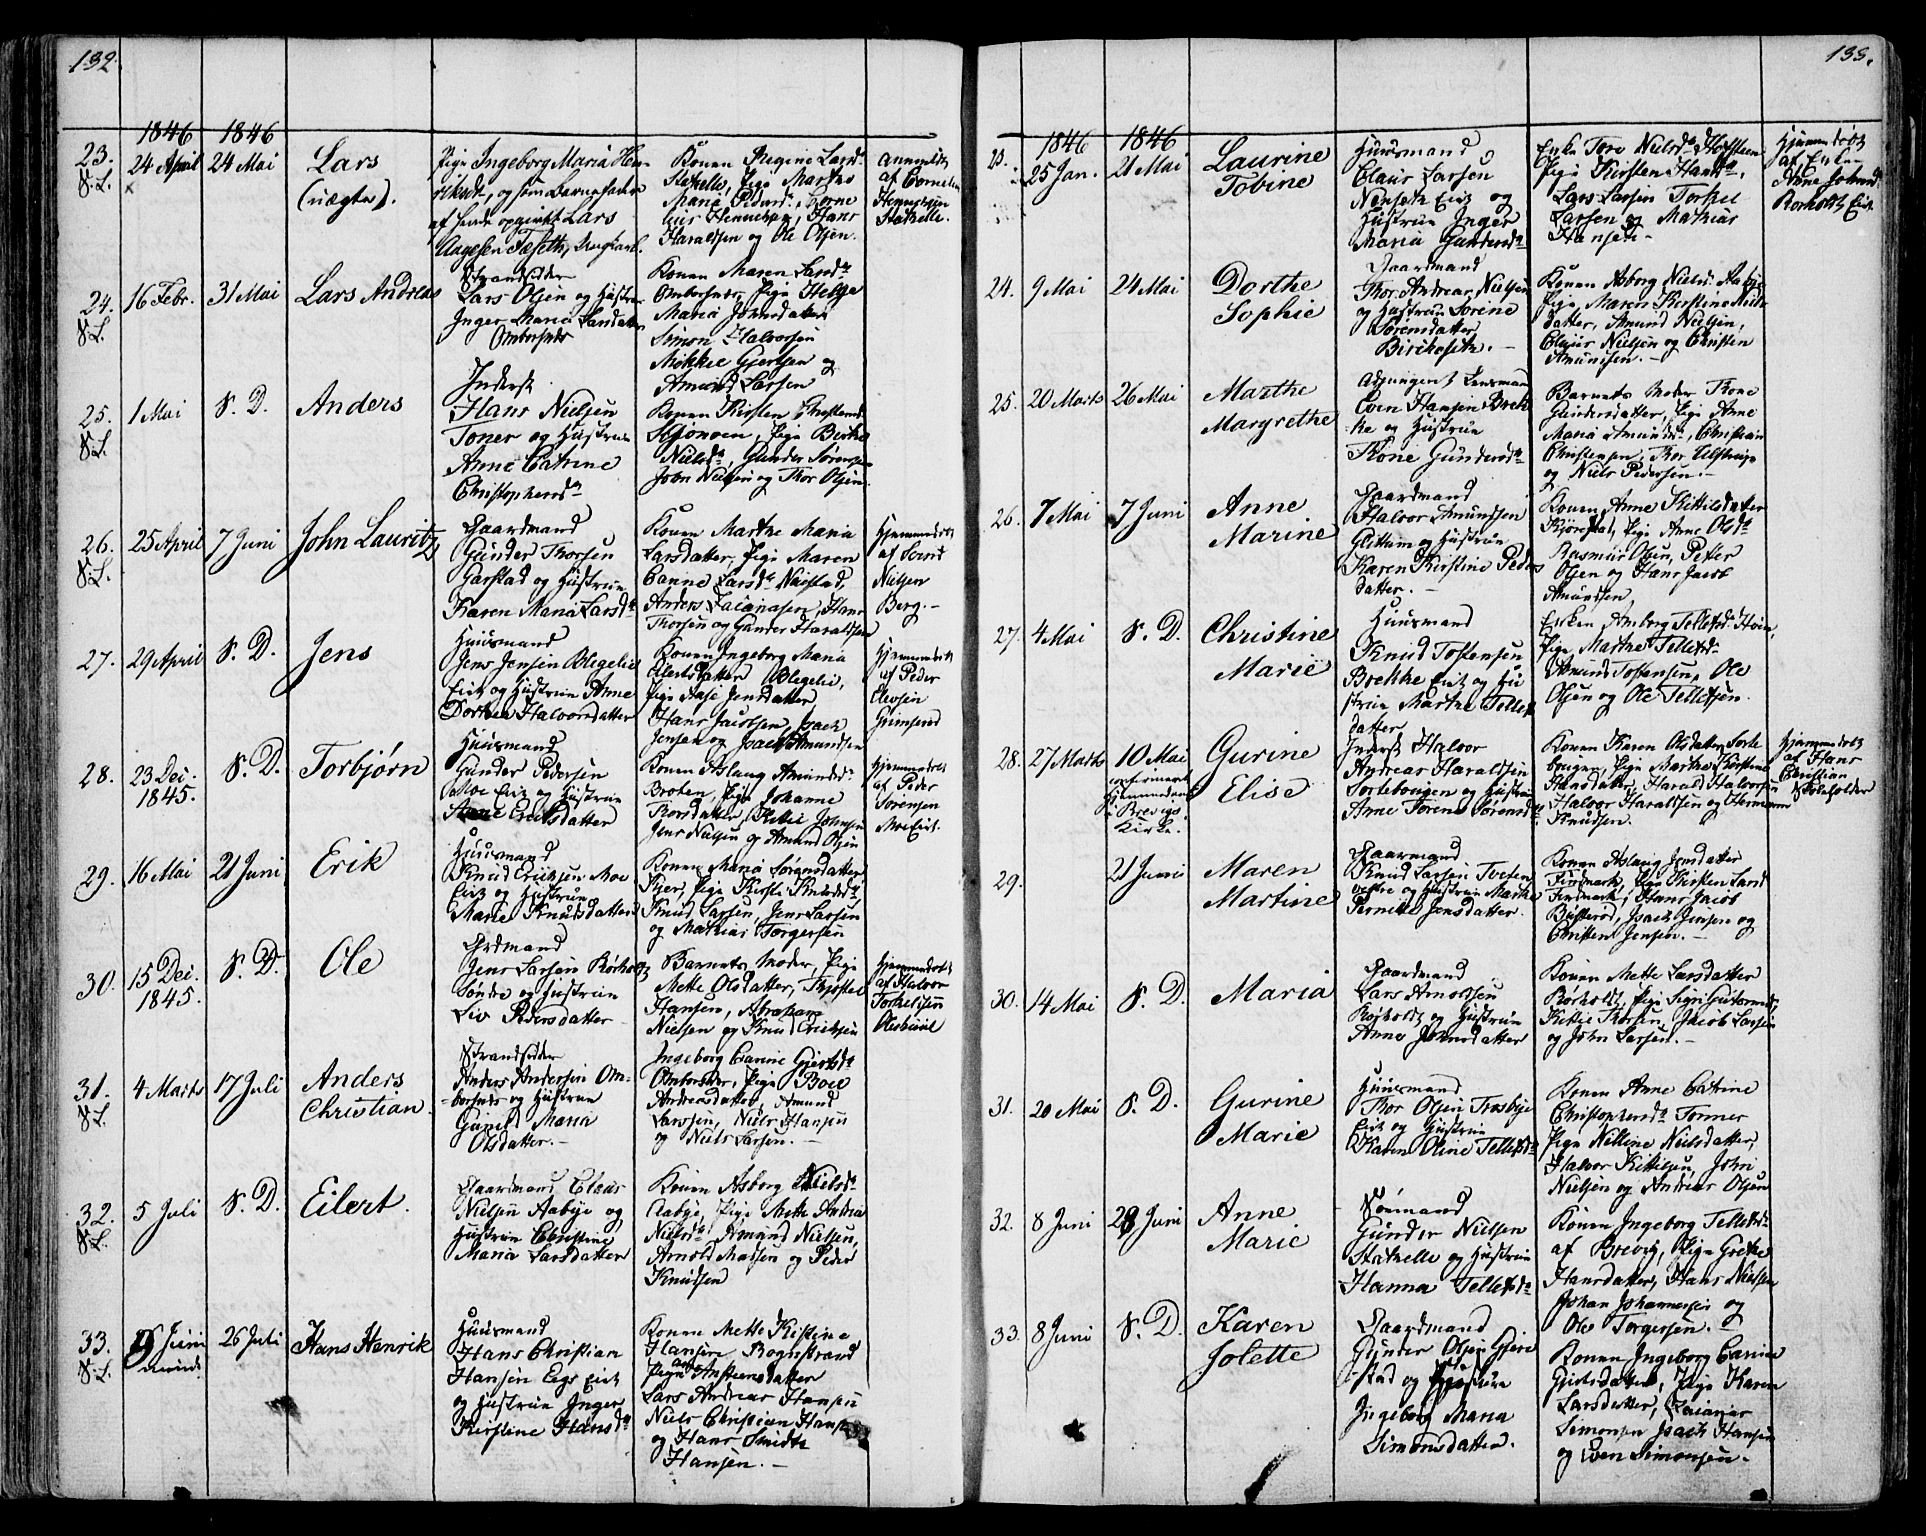 132.
1846 1846
23. 24 April 24 Mai Lars
S.L. (uægte).
Pige Ingeborg Maria Hen-
og som Barnefader
Lars
Konen Regine Larsd.
Stathelle, Pige Marthe
Maria Pedersd.
Hans
Haraldsen og Ole Olsen.
Anmeldt
af Cornelius
Stathelle.
24. 16 Febr. 31 Mai Lars Andreas
S.L.
Strandsidder
Lars Olsen og Hustrue
Inger Maria Larsdatter
Omborsnes
Konen Maren Larsd.
Omborsnes, Pige Helge
Maria Johnsdatter
Simon Halvorsen
Mikkel Gjertsen og
Amund Larsen
25. 1 Mai S. D. Anders
S.L.
Inderst
Hans Nielsen
Toner og Hustrue
Anne Catrine
Christophersd.
Konen Kirsten
Pige Berthe
Nielsd., Gunder Sørensen
John Nielsen og Thor Olsen.
26. 25 April 7 Juni John Lauritz
S.L.
Gaardmand
Gunder Thorsen
Garstad og Hustrue
Karen Maria Larsd.
Konen Marthe Maria
Larsdatter, Pige Maren
Larsd.
Anders Zacariasen, Hans
Thorsen og Gunder Haraldsen
Hjemmedøbt
af
Nielsen
Berg.-
27. 29 April S. D. Jens
Huusmand
Jens Jensen Blegelie
Eiet og Hustrue Anne
Dorthea Halvorsdatter
Konen Ingeborg Maria
Eilertsdatter Blegelie,
Pige Aase Jensdatter
Hans Jacobsen, Isack
Jensen og Isack Amundsen
Hjemmedøbt
af Peder
28. 23 Dec. S. D. Torbjørn
1845.
Huusmand
Gunder Pedersen
Moe Eiet og Hustrue
Anne Eriksdatter
Konen Aslaug Amundsd.
Broten, Pige Johanne
Thorsdatter, Johnsen
Jens Nielsen og Amund Olsen
Hjemmedøbt
af Peder
Sørensen
Moe Eiet.
29. 16 Mai 21 Juni Erik
Huusmand
Knud Eriksen Moe
Eiet og Hustrue
Marie Knudsdatter
Konen Maria Sørensdatter
Pige Kirsti Knudsd.
Knud Larsen, Jens Larsen
og Mathias Torgersen
30. 15 Dec. S. D. Ole
1845.
Jens Larsen Rørholt
Søndre og Hustrue
Liv Pedersdatter
Barnets Moder, Pige
Mette Olsdatter,
Hansen, Abraham
Nielsen og Knud Eriksen
Hjemmedøbt
af Halvor
Torkelsen
31. 4 Marts 17 Juli Anders
S.L. Christian.
Strandsidder
Anders Andersen Om-
borsnes og Hustrue
Maria
Olsdatter.-
Ingeborg Carine Gjertsd.
Pige
Andreasdatter, Amund
Larssen, Niels Hansen
og Niels Larsen.-
32. 5 Juli S. D. Eilert.
S.L.
Gaardmand Claus
Nielsen Aabye og
Hustrue Christine
Maria Larsdatter
Konen Asborg Nielsd.
Aabye, Pige Mette Andrea
Nielsd. Amund Nielsen,
Arnold Madsen og Peder
Knudsen
33. Juni 26 Juli Hans Henrik
S.L.
Huusmand
Hans Christian
Hansen Eegs Eiet
og Hustrue Inger
Kirstine Hansd.
Konen Mette Kistine
Hansen Rognstrand
Pige Anstensdatter
Lars Andreas Hansen
Niels Christian Hansen
og Hans Smidth
Hansen.-
133.
1846 1846
23. 25 Jan. 21 Mai Laurine
Tobine
Huusmand
Claus Larsen
Eiet og
Hustrue Inger
Maria Gundersd.
Enke Tore Nielsd.
Pige Kirstene Hansd.,
Lars Larsen Torkel
Larsen og Mathias
Hansen.-
Hjemmedøbt
af Enke
Anne Johnsd.
Rørholt Eiet
24. 9 Mai 24 Mai Dorthe
Sophie
Gaardmand
Thor Andreas Nielsen
og Hustrue Sørine
Sørensdatter
Konen Asborg Nielsd. Aabye
Pige Maren Kirstine Niels
datter, Amund Nielsen,
Nielsen og Christen
Amundsen.-
25. 20 Marts 26 Mai Marthe
Margrethe
Adjungent Lensmand
Even Hansen Brek
ke og Hustrue
Trone Gundersd.
Barnets Moder Trone
Gundersdatter, Pige Anne
Maria Amundsd., Christian
Christensen, Thor
og Niels Pedersen.-
26. 7 Mai 7 Juni Anne
Marine
Gaardmand
Halvor Amundsen
og Hustrue
Karen Kirstine Peders
datter.-
Konen Anne Kittilsdatter
Pige Anne Olsd.
Rasmus Olsen, Peter
Olsen og Hans Jacob
Amundsen
27. 4 Mai S. D. Christine
Marie
Huusmand
Knud Tostensen
Brekke Eiet og Hu
strue Marthe Tellefs
datter
Enken Amborg Tellefsd.
Pige Marthe Tellefsd.
Amund Tostensen, Ole
Olsen og Ole Tellefsen.
28. 27 Marts 10 Mai Gurine
confirmert Elise
Hjemmedaab
i Brevigs
Kirke.
Inderst Halvor
Andreas Haraldsen
Sortebougen og Hustrue
Anne Torene Sørensd.
Konen Karen Olsdatter Sorte
bougen, Pige Marthe Kirstine
Hansdatter, Harald Halvorsen
Halvor Haraldsen og Herman
Knudsen.
Hjemmedøbt
af Hans
Christian
29. 21 Juni Maren
Martine
Gaarmand
Knud Larsen Tveten
vestre og Hustrue Marthe
Pernille Jensdatter.
Konen Aslaug Jensdatter
Findmark, Pige Kirsten Larsd
Findmark, Hans Jacob
Isack Jensen og
Christen Jensen.-
30. 14 Mai S. D. Maria
Gaardmand
Lars Arnoldsen
Rørholt og Hustrue
Anne Johnsdatter
Konen Mette Larsdatter
Rørholt, Pige Signe
Kittil Thorsen, Jacob Larsen
og John Larsen.-
31. 20 Mai S. D. Gurine
Marie
Huusmand
Thor Olsen Trosbye
Eiet og Hustrue
Karen Oline Tellefsd.
Konen Anne Catrine
Christophersd. Tonner
Pige Nilline Nielsdatter,
Halvor Kittilsen, John
Nielsen og Andreas Olsen
32. 8 Juni 28 Juni Anne
Marie
Sømand
Gunder Nielsen
Stathelle og Hustrue
Hanna Tellefsd.
Konen Ingeborg Tellefsd.
af Brevig, Pige Grethe
Hansdatter, Hans Nielsen
Johan Johannesen og
Ole Torgersen.-
33. 8 Juni S. D. Karen
Jolette
Gaardmand
Gunder Olsen Gjers
stad og Hustrue
Ingeborg Maria
Simonsdatter.
Konen Ingeborg Carine
Gjertsdatter, Pige Karen
Larsdatter, Zacarias
Simonsen Isack Hansen
og Even Simonsen.-